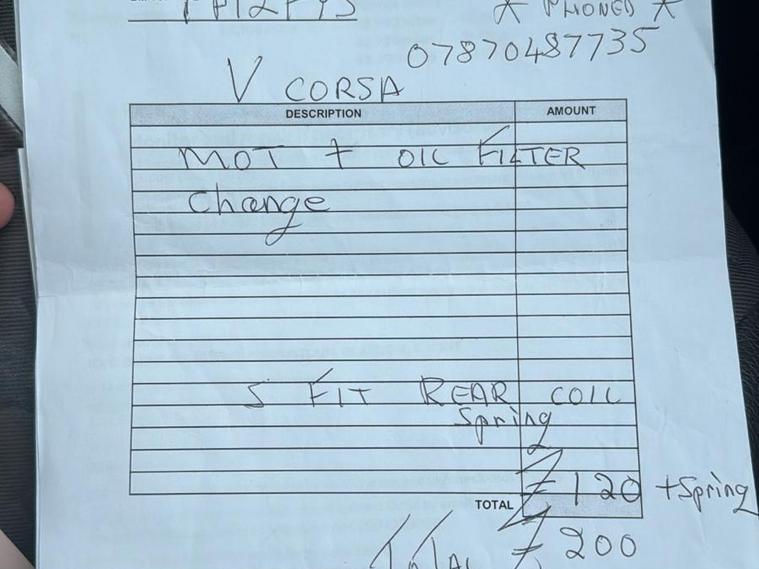 * PHONED *
07870487735
V CORSA
DESCRIPTION AMOUNT
MOT + OIL FILTER
Change
S FIT REAR COIL
Spring
£120 + Spring
TOTAL
TOTAL £200